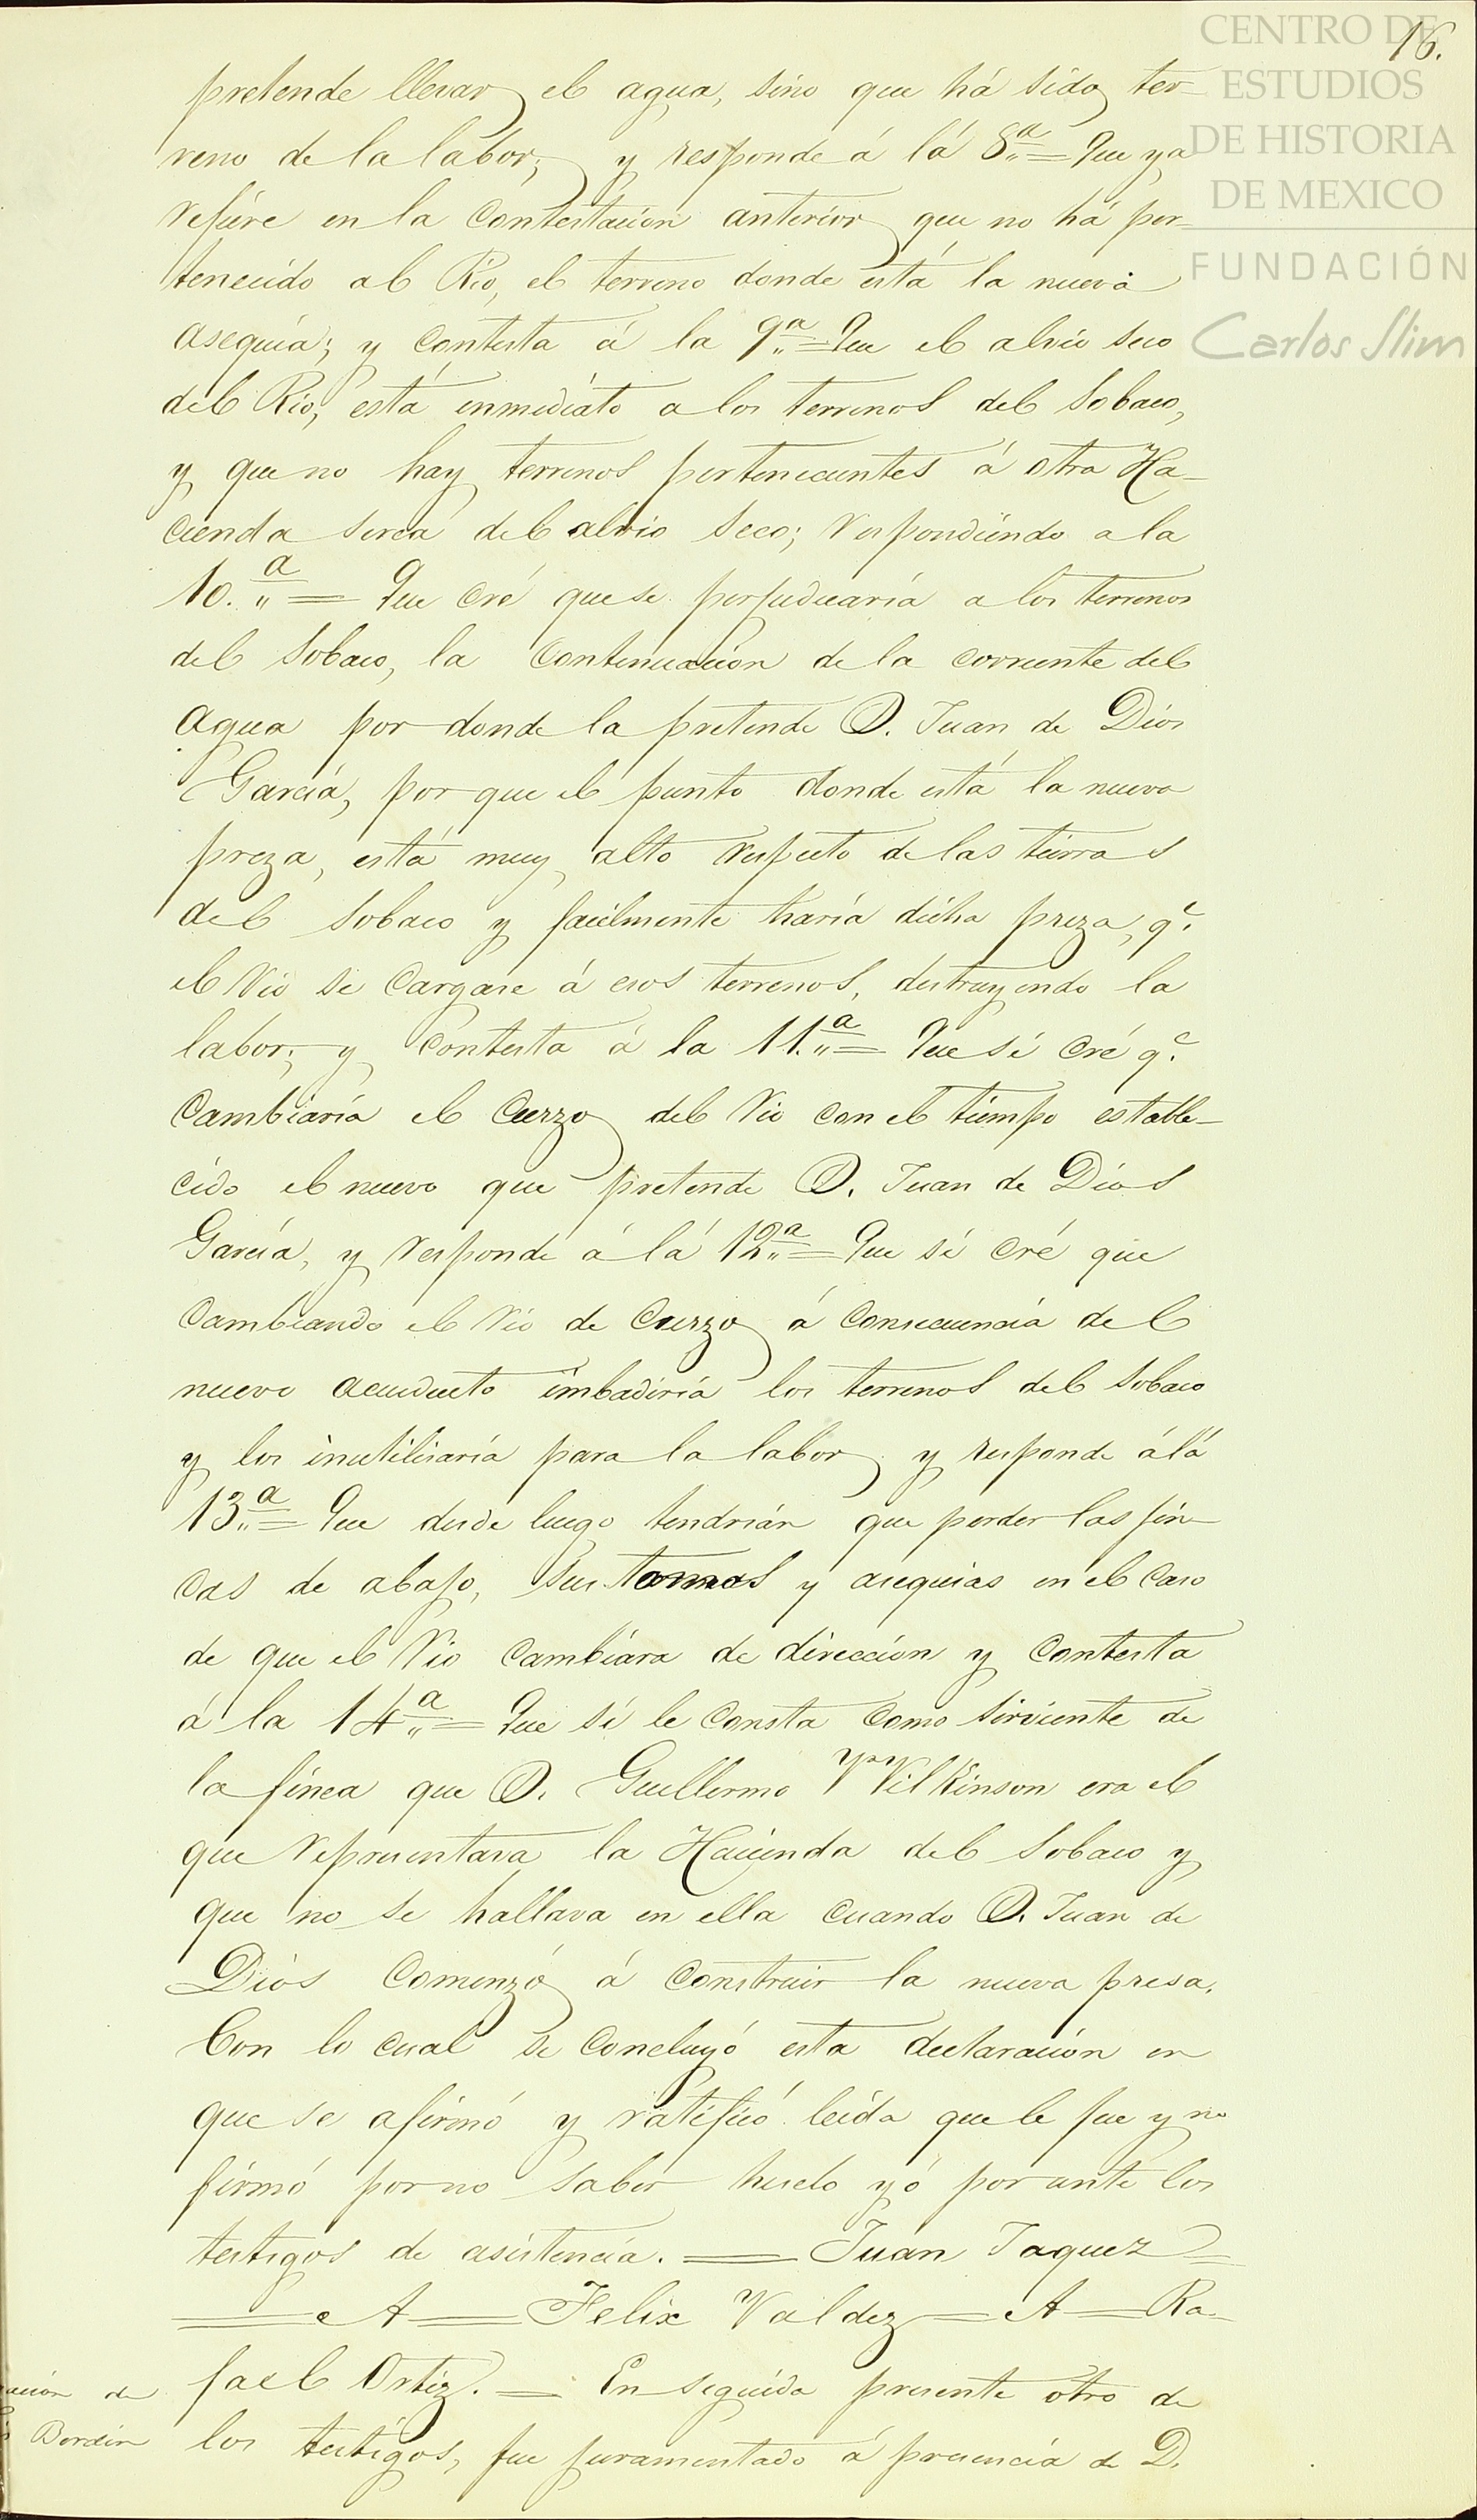 CENTRO DE
ESTUDIOS
DE HISTORIA
DE MEXICO
FUNDACIÓN
Carlos Slim
16.
pretende llevar el agua, sino que há sido ter-
reno de la labor; y responde á lá 8.ª = Que ya
refiere en la contestacion anterior que no há per-
tenecido al Rio, el terreno donde está la nueva
asequia; y contesta á la 9.ª = Que el alvio seco
del Rio, está inmediáto a los terrenos del Sobaco,
y que no hay terrenos pertenecientes á otra Ha-
cienda serca del alvio seco; respondiendo a la
10.ª = Que cré que se perjudicaría a los terrenos
del Sobaco, la continuacion de la corriente del
agua por donde la pretende D. Juan de Dios
García, por que el punto donde está la nueva
preza, está muy alto respecto de las tierras
del Sobaco y facilmente haría dicha preza, q.e
el rio se cargase á esos terrenos, destruyendo la
labor; y contesta á la 11.ª = Que sí cré q.e
cambiaría el curzo del rio con el tiempo estable-
cido el nuevo que pretende D. Juan de Dios
García, y responde á lá 12.ª = Que sí cré que
cambiando el rio de curzo á consecuencia del
nuevo acueducto imbadiría los terrenos del Sobaco
y los inutilisaría para la labor y responde á lá
13.ª = Que desde luego tendrián que perder las fin-
cas de abajo, sus tomas y asequias en el caso
de que el rio cambiara de dirección y contesta
á la 14.ª = Que sí le consta como sirviente de
la finca que D. Guillermo Wilkinson era el
que representava la Hacienda del Sobaco y
que no se hallava en ella cuando D. Juan de
Dios comenzó á construir la nueva presa.
Con lo cual se concluyó esta declaración en
que se afirmó y ratificó leida que le fue y no
firmó por no saber hicelo yó por ante los
testigos de asistencia. = Juan Jaquez =
= A = Felix Valdez = A = Ra-
fael Ortiz. = En seguida presente otro de
los testigos, fue juramentado á presencia de D.
ación de
Bordin